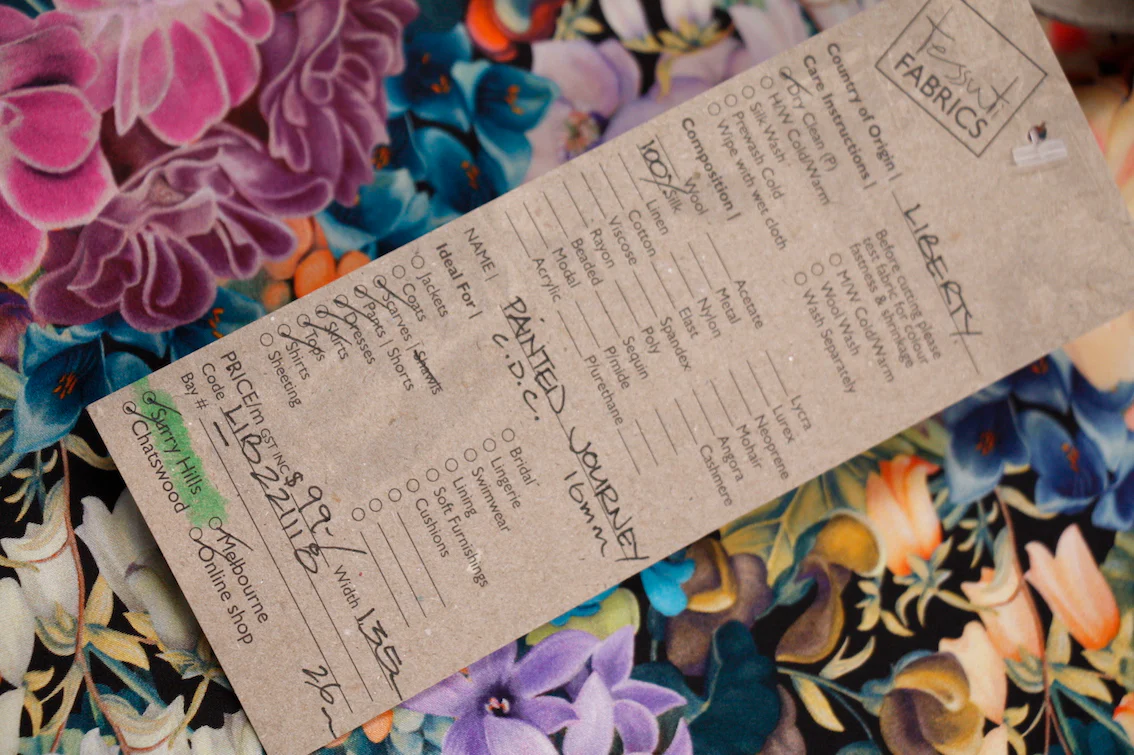 Tessuti
FABRICS
Country of Origin | LIBERTY.
Care Instructions |
Dry Clean (P)
H/W Cold/Warm
Silk Wash
Prewash Cold
Wipe with wet cloth
Before cutting please
test fabric for colour
fastness & shrinkage
M/W Cold/Warm
Wool Wash
Wash Separately
Composition |
Wool
100% Silk
Linen
Cotton
Viscose
Rayon
Beaded
Modal
Acrylic
Acetate
Metal
Nylon
Elast
Spandex
Poly
Sequin
P/mide
P/urethane
Lycra
Lurex
Neoprene
Mohair
Angora
Cashmere
NAME | PAINTED JOURNEY
C.D.C. 16mm
Ideal For |
Jackets
Coats
Scarves | Shawls
Pants | Shorts
Dresses
Skirts
Tops
Shirts
Sheeting
Bridal
Lingerie
Swimwear
Lining
Soft Furnishings
Cushions
PRICE/m GST INC $99-/ Width 135
Code LIB221118
Bay # -
Surry Hills
Chatswood
Melbourne
Online shop